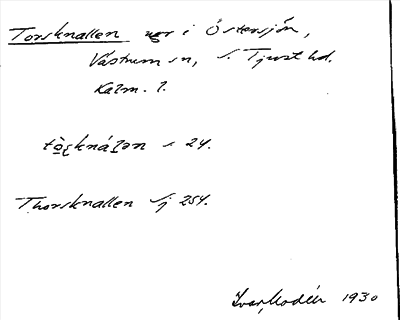 Torsknallen i Östersjön,
Västrum sn, S. Tjust hd.
Kalm. l.
s 24.
Thorsknallen Sj 254.
Ivar Modéer 1930